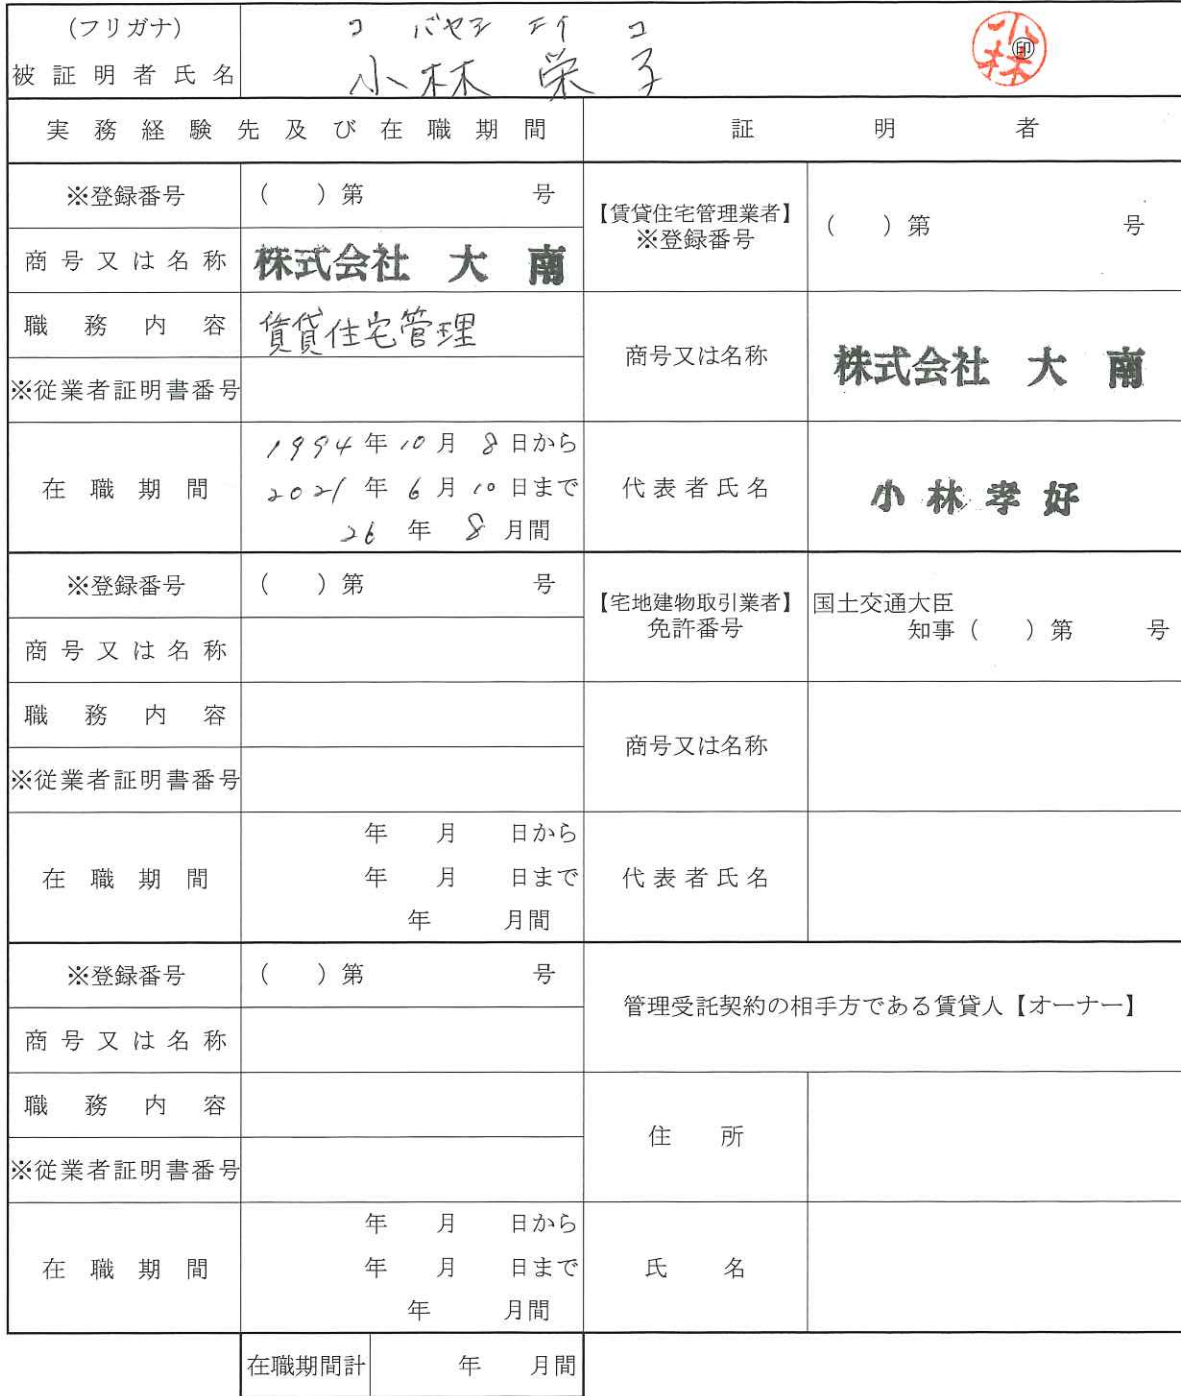 (フリガナ) コバヤシ エイコ
被証明者氏名 小林 栄子 ㊞ 小林
実務経験先及び在職期間 証明者
※登録番号 ( )第 号
【賃貸住宅管理業者】
※登録番号 ( )第 号
商号又は名称 株式会社 大南
職務内容 賃貸住宅管理
商号又は名称 株式会社 大南
※従業者証明書番号
在職期間 1994年10月8日から
2021年6月10日まで
26年8月間
代表者氏名 小林孝好
※登録番号 ( )第 号
【宅地建物取引業者】 国土交通大臣
免許番号 知事( )第 号
商号又は名称
職務内容
商号又は名称
※従業者証明書番号
在職期間 年 月 日から
年 月 日まで
年 月間
代表者氏名
※登録番号 ( )第 号
管理受託契約の相手方である賃貸人【オーナー】
商号又は名称
職務内容
住所
※従業者証明書番号
在職期間 年 月 日から
年 月 日まで
年 月間
氏名
在職期間計 年 月間